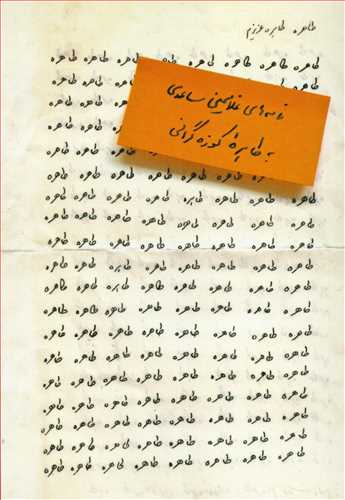 طاهره طاهره عزیزم
طاهره طاهره طاهره طاهره طاهره طاهره طاهره طاهره
طاهره طاهره طاهره طاهره
طاهره طاهره
طاهره طاهره
طاهره طاهره
طاهره طاهره طاهره طاهره طاهره
طاهره طاهره طاهره طاهره طاهره طاهره طاهره طاهره
طاهره طاهره طاهره طاهره طاهره طاهره طاهره طاهره
طاهره طاهره طاهره طاهره طاهره طاهره طاهره طاهره
طاهره طاهره طاهره طاهره طاهره طاهره طاهره طاهره
طاهره طاهره طاهره طاهره طاهره طاهره طاهره طاهره
طاهره طاهره طاهره طاهره طاهره طاهره طاهره طاهره
طاهره طاهره طاهره طاهره طاهره طاهره طاهره طاهره
طاهره طاهره طاهره طاهره طاهره طاهره طاهره طاهره
طاهره طاهره طاهره طاهره طاهره طاهره طاهره طاهره
طاهره طاهره طاهره طاهره طاهره طاهره طاهره طاهره
طاهره طاهره طاهره طاهره طاهره طاهره طاهره طاهره
طاهره طاهره طاهره طاهره طاهره طاهره طاهره طاهره
طاهره طاهره طاهره طاهره طاهره طاهره طاهره طاهره
نامه‌های غلامحسین ساعدی
به طاهره کوزه‌گرانی